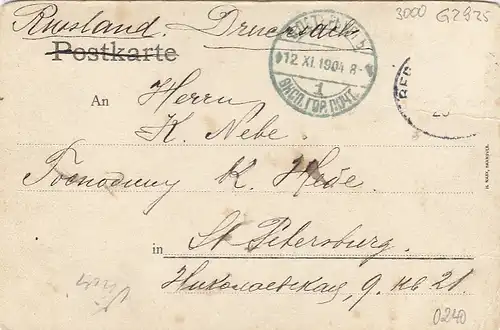 Russland. Drucksache
3000 G2925
Postkarte
12 XI. 1904 8-
1
ЭКСП. ГОР. ПОЧТ.
An Herrn
K. Nebe.
Господину К. Небе.
in St Petersburg.
Николаевская, 9. кв 21.
0240